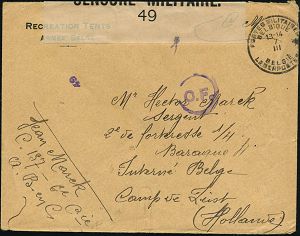 CENSURE MILITAIRE.
49
RECREATION TENTS
ARMÉE BELGE
POSTES MILITAIRES
BELGIQUE
13-14
7
III
BELGIE
LEGERPOSTERIJ
49
O.F.
Mr Hector Marck
Sergent
2e de forteresse 1/4
Baraque 4
Interné Belge
Camp de Zeist
(Hollande)
Jean Marck
D. 187 6e Cie
A. B. en C.